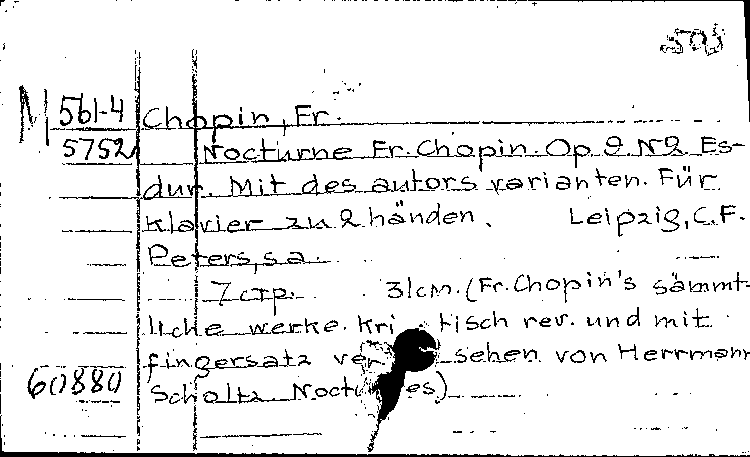 M 561-4 Chopin, Fr.
5752 Nocturne Fr. Chopin. Op 9. N2 Es-
dur. Mit des autors varianten. Für
klavier zu 2 händen. Leipzig, C.F.
Peters, s.a.
7 стр. 31cm. (Fr. Chopin's sämmt-
liche werke. Kritisch rev. und mit
fingersatz versehen von Herrmann
60880 Scholtz. Noct es)